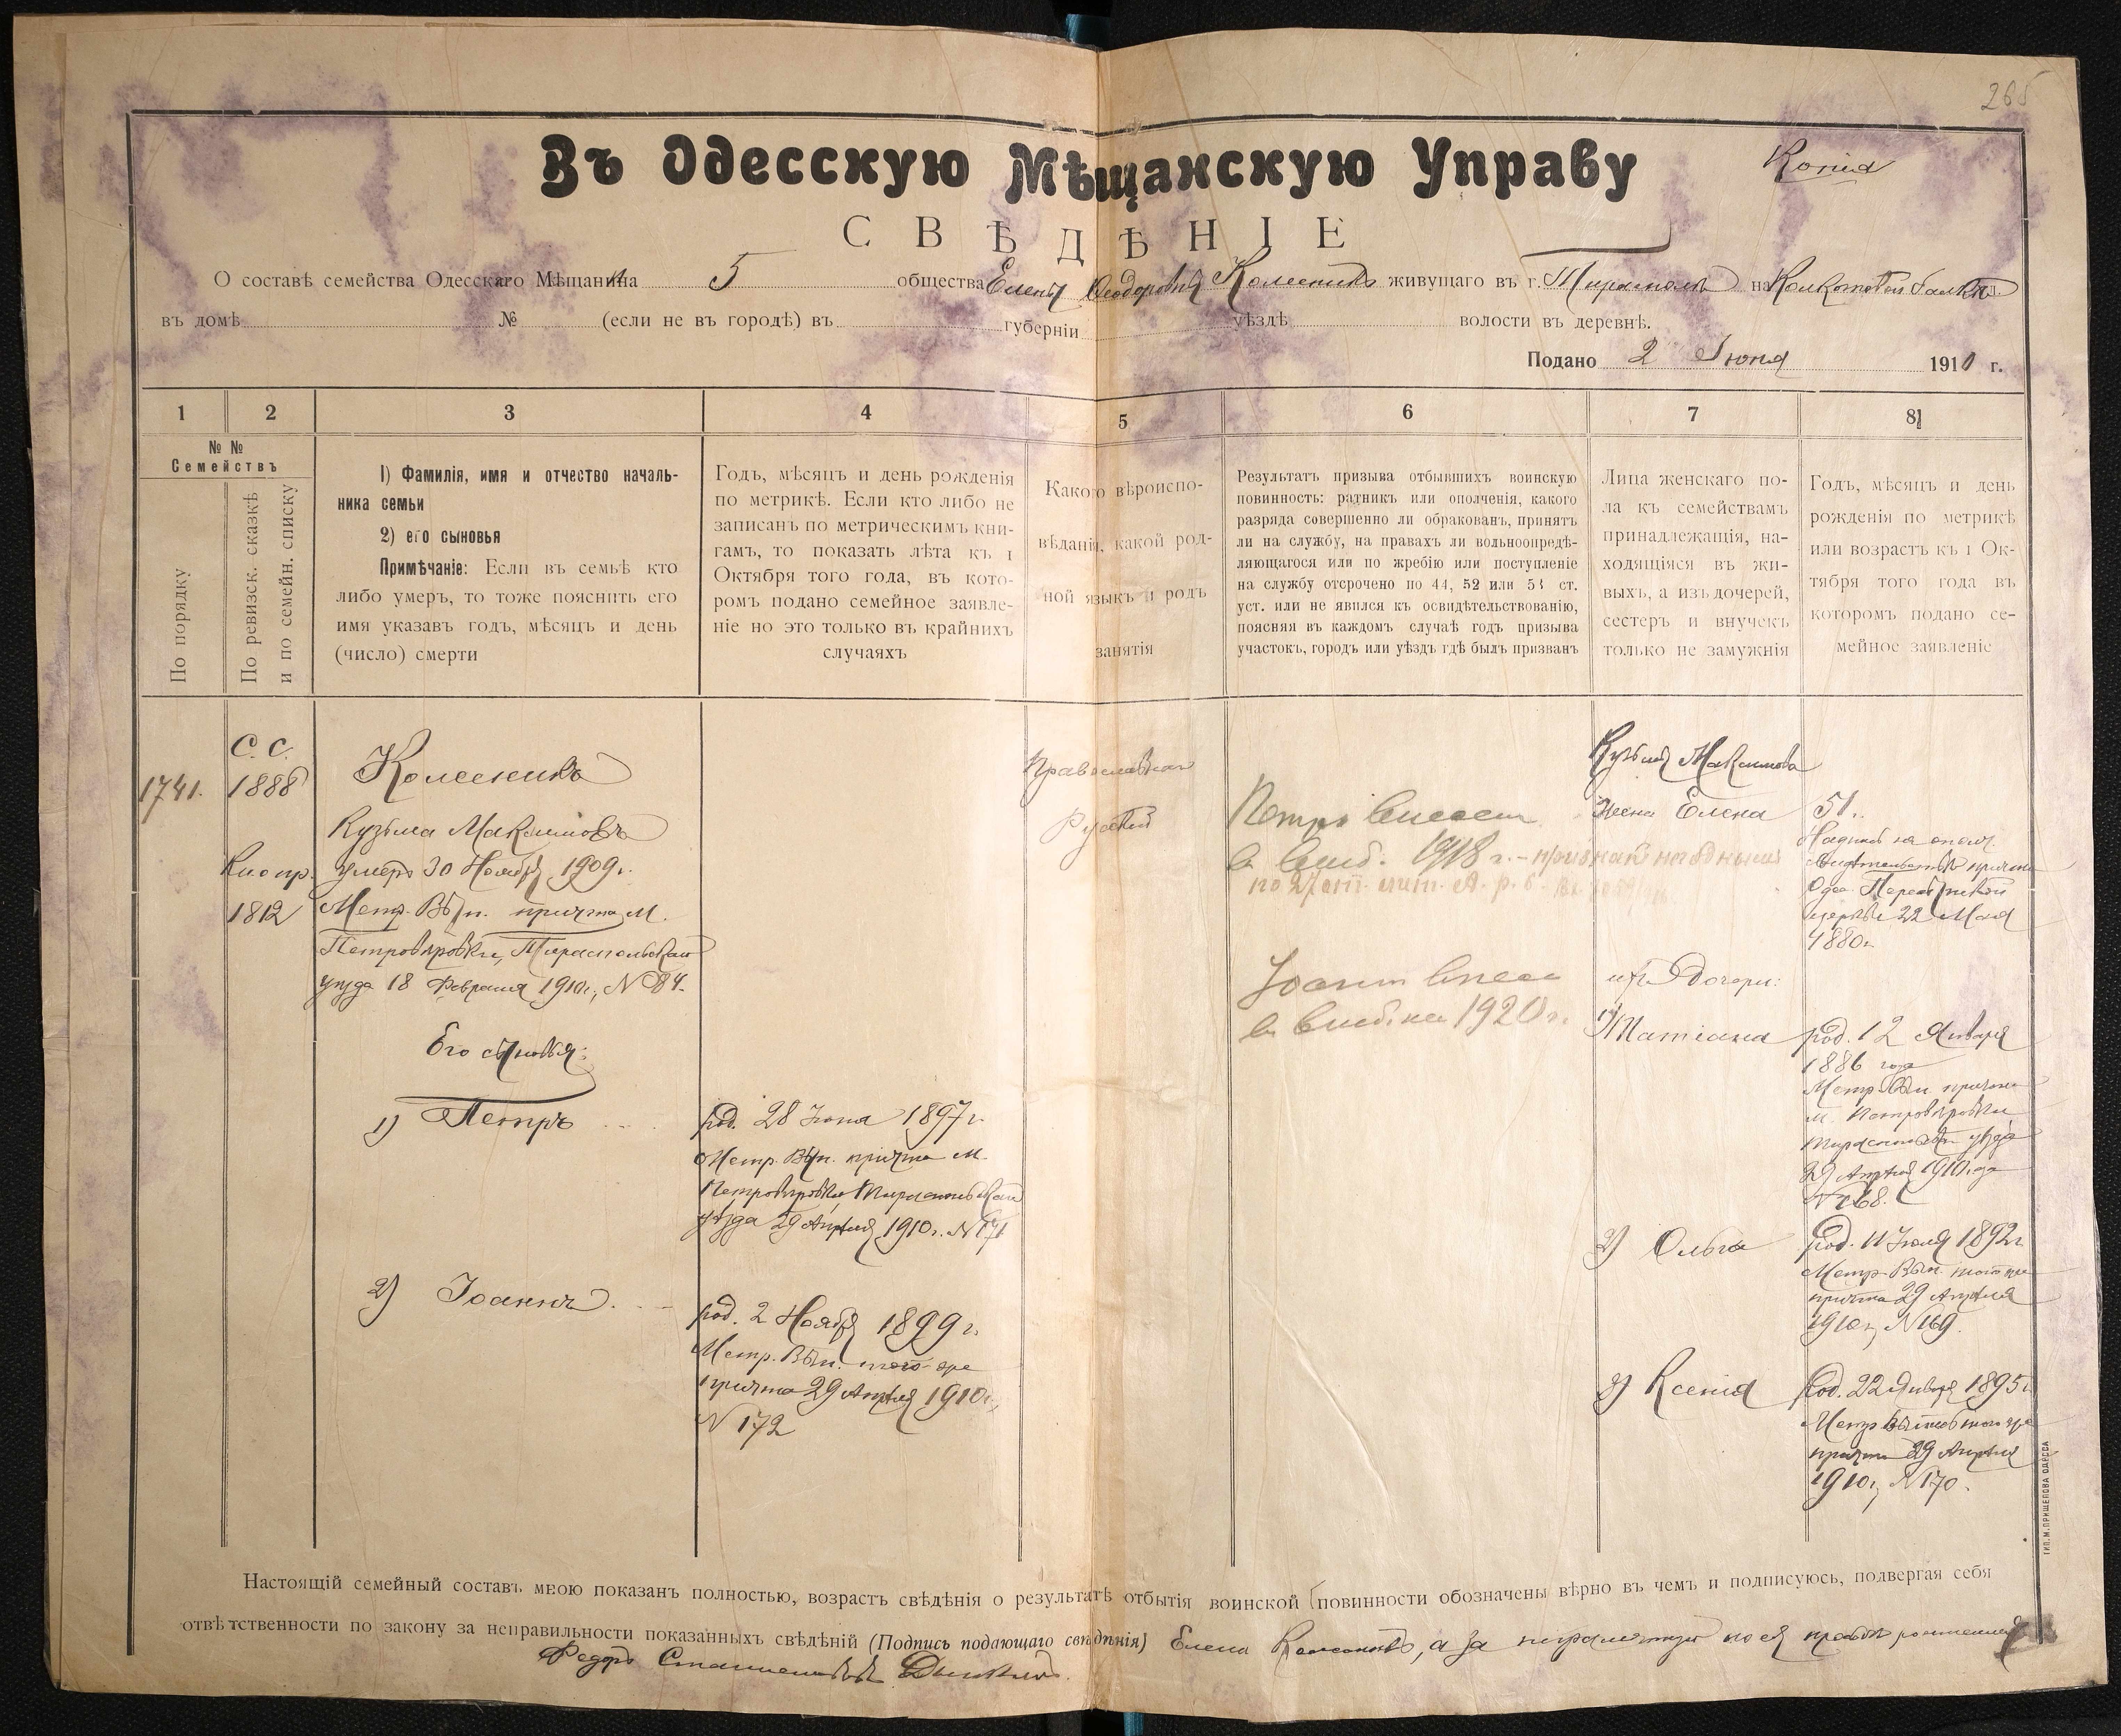 265
Въ Одесскую Мѣщанскую Управу
Копія
СВѢДѢНІЕ
О составѣ семейства Одесскаго Мѣщанина 5 общества Елены Ѳеодоровны Колесникъ живущаго въ г. Тирасполѣ на Колкотовой балкѣ ул.
въ домѣ № (если не въ городѣ) въ губерніи уѣздѣ волости въ деревнѣ.
Подано 2 Іюня 1910 г.
1 2 3 4 5 6 7 8
№ №
Семействъ
По порядку
По ревизск. сказкѣ
и по семейн. списку
1) Фамилія, имя и отчество началь-
ника семьи
2) его сыновья
Примѣчаніе: Если въ семьѣ кто
либо умеръ, то тоже пояснить его
имя указавъ годъ, мѣсяцъ и день
(число) смерти
Годъ, мѣсяцъ и день рожденія
по метрикѣ. Если кто либо не
записанъ по метрическимъ кни-
гамъ, то показать лѣта къ 1
Октября того года, въ кото-
ромъ подано семейное заявле-
ніе но это только въ крайнихъ
случаяхъ
Какого вѣроиспо-
вѣданія, какой род-
ной языкъ и родъ
занятія
Результатъ призыва отбывшихъ воинскую
повинность: ратникъ или ополченія, какого
разряда совершенно ли обракованъ, принятъ
ли на службу, на правахъ ли вольноопредѣ-
ляющагося или по жребію или поступленіе
на службу отсрочено по 44, 52 или 53 ст.
уст. или не явился къ освидѣтельствованію,
поясняя въ каждомъ случаѣ годъ призыва
участокъ, городъ или уѣздъ гдѣ былъ призванъ
Лица женскаго по-
ла къ семействамъ
принадлежащія, на-
ходящіяся въ жи-
выхъ, а изъ дочерей,
сестеръ и внучекъ
только не замужнія
Годъ, мѣсяцъ и день
рожденія по метрикѣ
или возрастъ къ 1 Ок-
тября того года въ
которомъ подано се-
мейное заявленіе
1741.
С. С.
1888
1812
Колесникъ
Кузьма Максимовъ
умеръ 30 Ноября 1909 г.
Метр. Вып. причта м.
Петровѣровки, Тираспольскаго
уѣзда 18 Февраля 1910 г., N 84.
Его сыновья:
1) Петръ
2) Іоаннъ
род. 28 Іюня 1897 г.
Метр. Вып. причта м.
Петровѣровки Тираспольскаго
уѣзда 29 Апрѣля 1910 г. N 171
род. 2 Ноября 1899 г.
Метр. Вып. того-же
причта 29 Апрѣля 1910 г.,
N 172
Православная
Русскій
Петръ внесен
в 1918 г. - признан
Іоанн внесен
1920 г.
Кузьмы Максимова
жена Елена
дочери:
1) Татіана
2) Ольга
3) Ксенія
51.
причта
церкви 22 Мая
1880 г.
род. 12 Января
1886 года
Метр. Вып. причта
м. Петровѣровки
Тираспольск. уѣзда
29 Апрѣля 1910 года
N 168.
род. 11 Іюля 1892 г.
Метр. Вып. того же
причта 29 Апрѣля
1910 г., N 169.
род. 22 Января 1895 г.
Метр. Вып. того же
причта 29 Апрѣля
1910 г., N 170.
Настоящій семейный составъ мною показанъ полностью, возрастъ свѣдѣнія о результатѣ отбытія воинской повинности обозначены вѣрно въ чемъ и подписуюсь, подвергая себя
отвѣтственности по закону за неправильности показанныхъ свѣдѣній (Подпись подающаго свѣдѣнія) Елена Колесникъ, а за неграмотную по ея просьбѣ росписался
Федоръ
ТИП. М. ПРИЩЕПОВА ОДЕССА